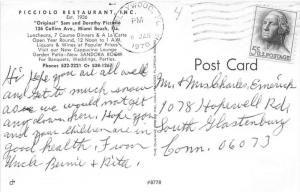 PICCIOLO RESTAURANT, INC.
Est. 1936
"Original" Sam and Dorothy Picciolo
136 Collins Ave., Miami Beach, Fla.
Luncheons, 7 Course Dinners & A La Carte
Open Year Round, 12 Noon to 1 A.M.
Liquors & Wines at Popular Prices
Visit our New Cappuccino Lounge
Garden Patio - New PANDORA ROOM
For Banquets, Weddings, Parties.
Phones: 532-2221 Or 538-1267
PM
6 JAN
1970
5¢ U.S. POSTAGE
Post Card
Hi: Hope you are all well
and get to much snow
as we would not get
any down here. Hope you
and your children are in
good health. From
Uncle Bernie & Rita.
Mr. & Mrs. Charles Emerick
1078 Hopewell Rd,
South Glastonbury
Conn. 06073
#8778